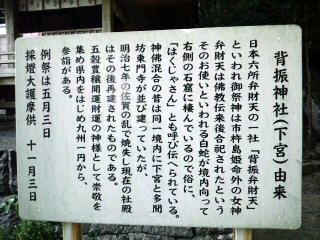 背振神社(下宮)由来
日本六所弁財天の一社「背振弁財天」
といわれ御祭神は市杵島姫命外の女神
弁財天は佛教伝来後合祀されたという
そのお使いといわれる白蛇が境内向って
右側の石窟に棲んでいるので俗に、
「はくじゃさん」とも呼び伝へられている。
神佛混合の昔は同一境内に下宮と多聞
坊東門寺が並び建っていたが、
明治七年の佐賀の乱で焼失し現在の社殿
はその後再建されたものである。
五穀豊穣開運財運の神様として崇敬を
集め県内をはじめ九州一円から、
参詣がある。
例祭は五月三日
採燈大護摩供 十一月三日